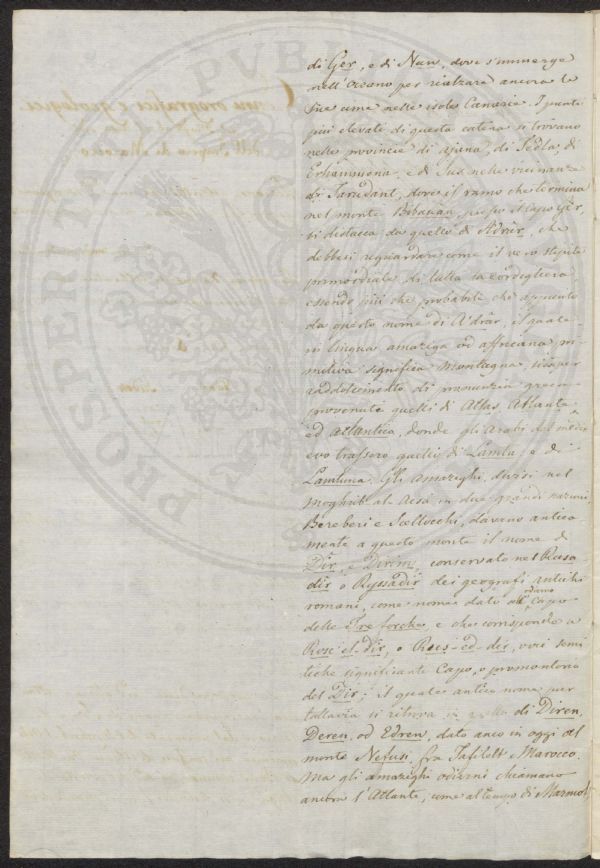 di Ger, e di Nun, dove s'immerge
nell'Oceano per rialzare ancora le
sue cime nelle isole Canarie. I punti
più elevati di questa catena si trovano
nelle provincie di Ajana, di Tedla, di
e di Sus nelle vicinanze
di Tarudant, dove il ramo che termina
nel monte Bibauan, presso il Capo Ger,
si distacca da quello di Adrár, che
debbesi riguardare come il vero stipite
primordiale di tutta la cordigliera
essendo più che probabile che appunto
da questo nome di A'drár, il quale
in lingua amaziga od affricana pri-
mitiva significa montagna, sia per
raddolcimento di pronunzia greca
provenuto quelli di Atlas, Atlante
ed atlantico, donde gli Arabi del medio
evo trassero quelli di Lamta, e di
Lamtuna. Gli amazighi, divisi nel
Moghrib-al-Acsá in due grandi nazioni,
Bereberi e Scellocchi, davano antica-
mente a questo monte il nome di
Dir, e Dirim, conservato nel Rusa
dir o Ryssadir dei geografi antichi
romani, come nome dato al Capo
delle Tre forche, e che corrisponde a
Rosc-el-dir, o Raes-ed-der, voci semi
tiche significante Capo, o promontorio
del Dir; il quale antico nome per
tuttavia si ritrova in quello di Diren,
Deren, od Edren, dato anco in oggi al
monte Nefusi fra Tafilelt e Marocco.
Ma gli amazighi odierni chiamano
ancora l'Atlante, come al tempo di Marmol
PROSPERITATI PUBL